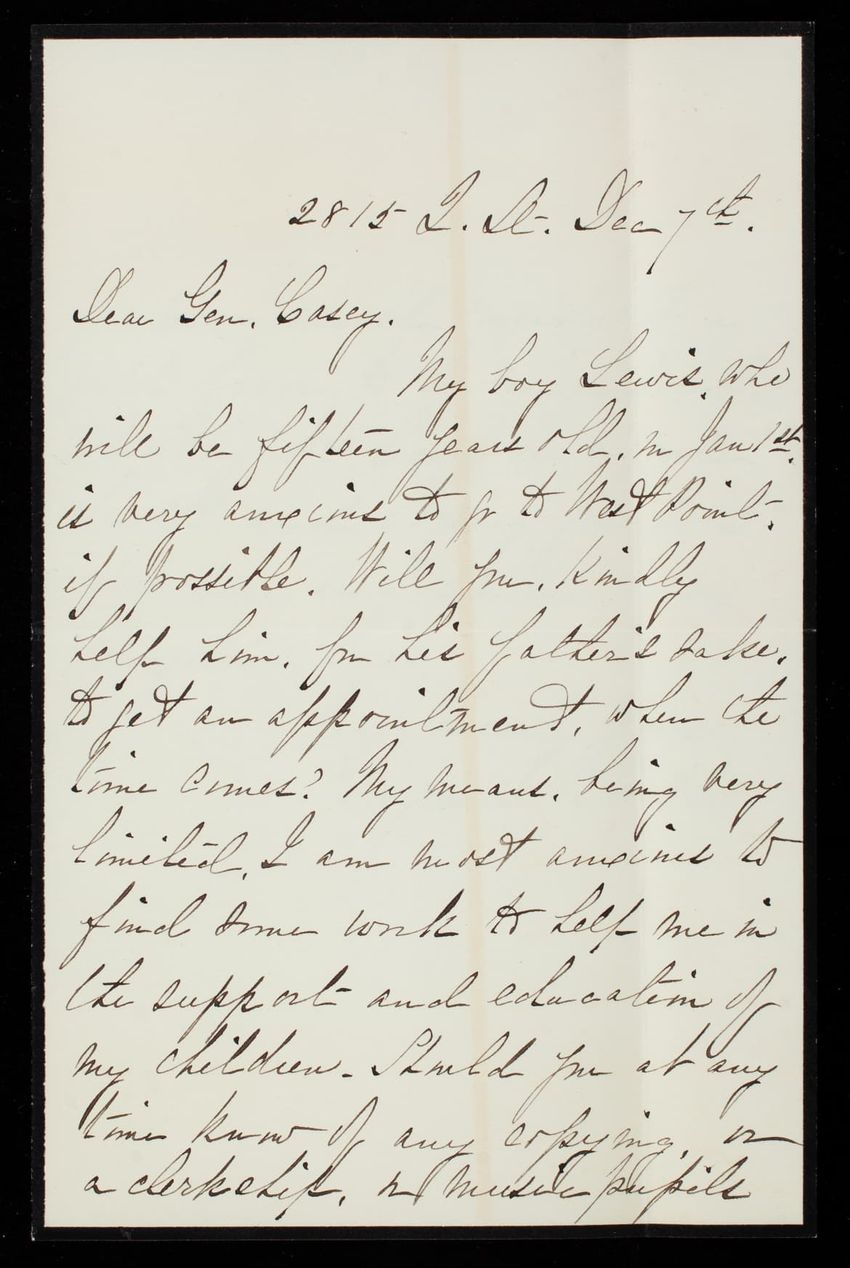 2815 Q. St. Dec 7th.
Dear Gen. Casey.
My boy Lewis, who
will be fifteen years old, on Jan 1st.
is very anxious to go to West Point,
if possible. Will you, kindly
help him, for his father's sake,
to get an appointment, when the
time comes? My means, being very
limited, I am most anxious to
find some work to help me in
the support and education of
my children. Should you at any
time know of any copying, or
a clerkship, or music pupils